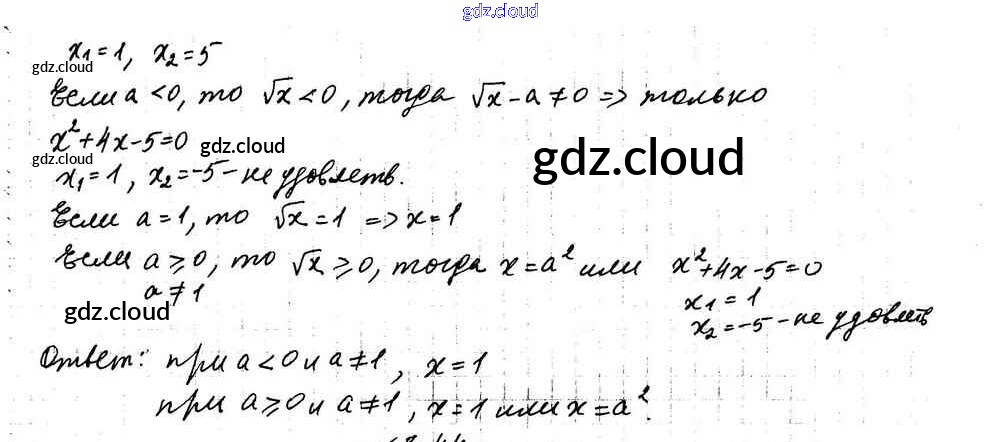 gdz.cloud
x₁=1, x₂=5
gdz.cloud
Если a<0, то √x<0, тогда √x-a≠0 => только
x²+4x-5=0
gdz.cloud
gdz.cloud
gdz.cloud
x₁=1, x₂=-5-не удовлетв.
Если a=1, то √x=1 => x=1
Если a⩾0, то √x⩾0, тогда x=a² или x²+4x-5=0
a≠1
x₁=1
gdz.cloud
x₂=-5-не удовлетв
Ответ: при a<0 и a≠1, x=1
при a⩾0 и a≠1, x=1 или x=a².